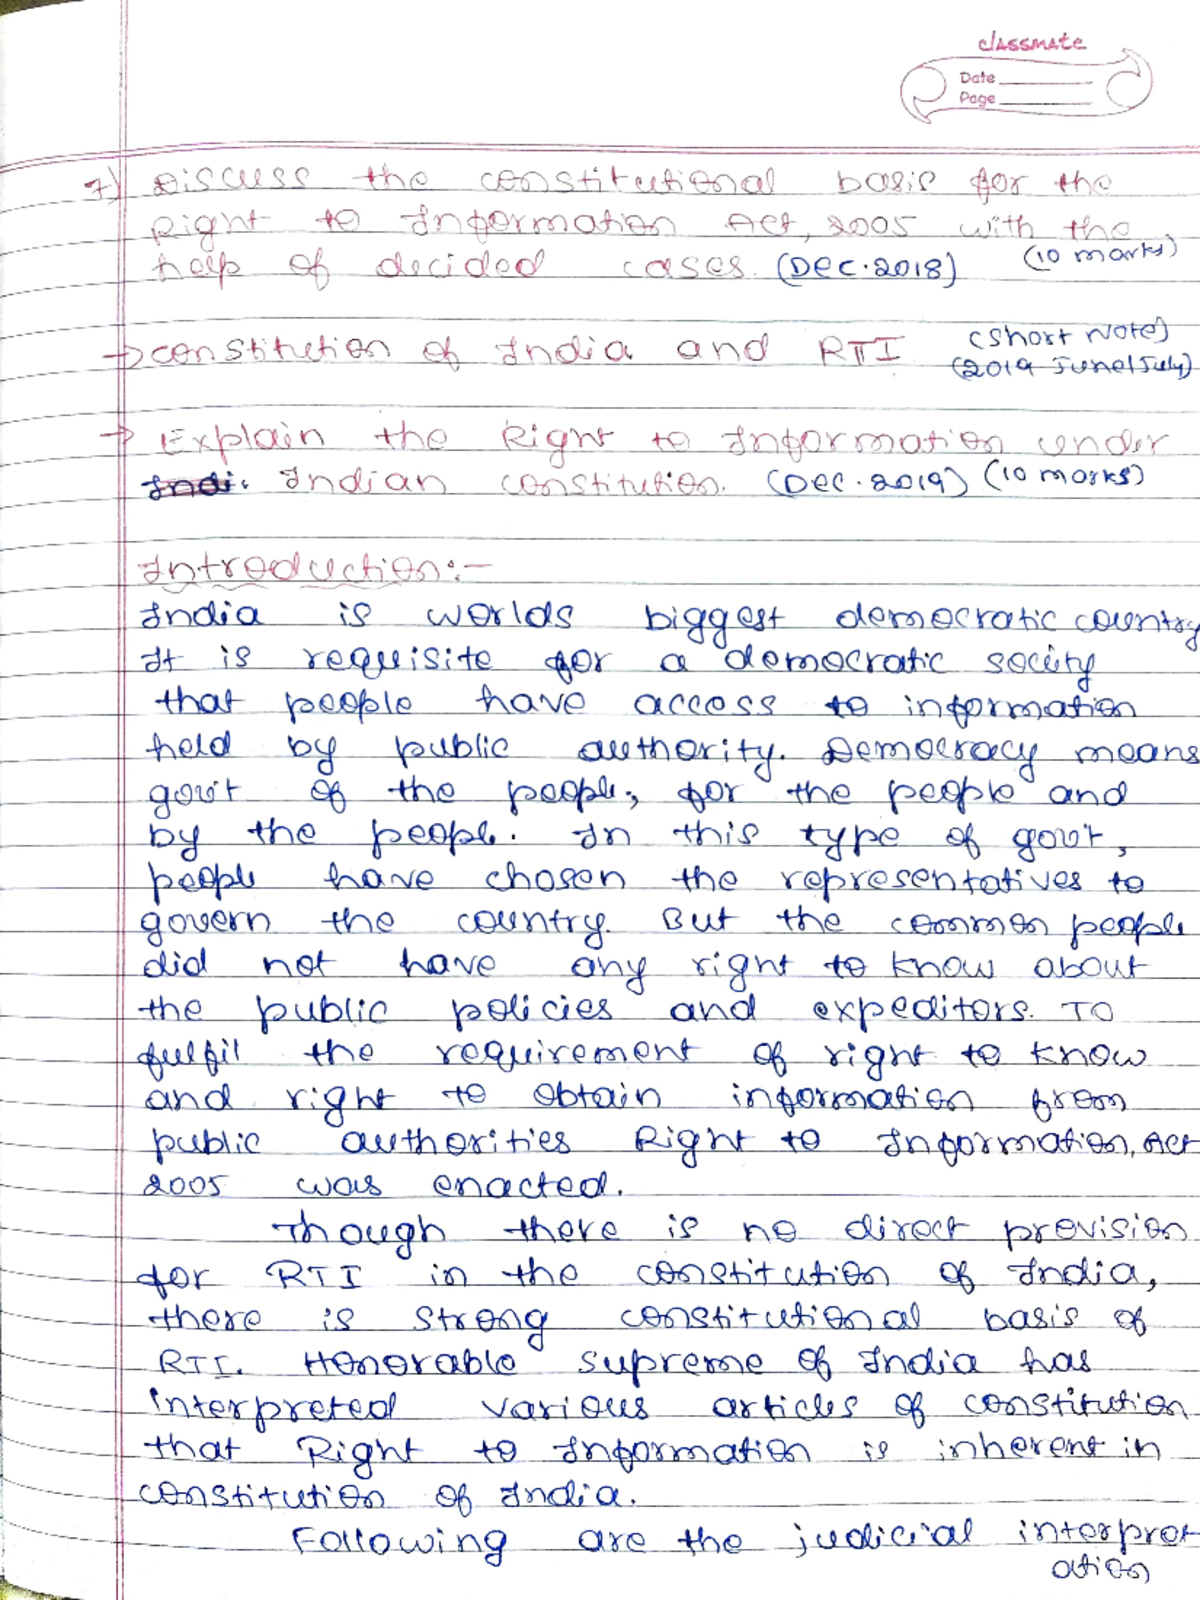 classmate
Date
Page
7) Discuss the constitutional basis for the
Right to Information Act, 2005 with the
help of decided cases. (Dec. 2018) (10 marks)
→ constitution of India and RTI (Short Note)
(2019 June/July)
→ Explain the Right to Information under
Indi. Indian constitution. (Dec. 2019) (10 marks)
Introduction:-
India is worlds biggest democratic country
It is requisite for a democratic society
that people have access to information
held by public authority. Democracy means
govt of the people, for the people and
by the people. In this type of govt,
people have chosen the representatives to
govern the country. But the common people
did not have any right to know about
the public policies and expeditors. To
fulfil the requirement of right to know
and right to obtain information from
public authorities Right to Information, Act
2005 was enacted.
Though there is no direct provision
for RTI in the constitution of India,
there is strong constitutional basis of
RTI. Honorable supreme of India has
interpreted various articles of constitution
that Right to Information is inherent in
constitution of India.
Following are the judicial interpret
ation